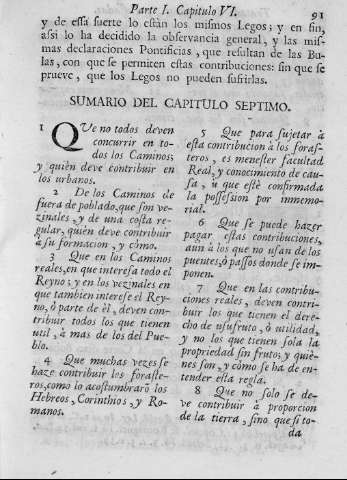 Parte I. Capitulo VI.
91
y de essa suerte lo estàn los mismos Legos; y en fin,
assi lo ha decidido la observancia general, y las mis-
mas declaraciones Pontificias, que resultan de las Bu-
las, con que se permiten estas contribuciones: sin que se
prueve, que los Legos no pueden sufrirlas.
SUMARIO DEL CAPITULO SEPTIMO.
1 QUe no todos deven
concurrir en to-
dos los Caminos;
y quièn deve contribuir en
los urbanos.
2 De los Caminos de
fuera de poblado, que son ve-
zinales, y de una costa re-
gular, quièn deve contribuir
à su formacion, y còmo.
3 Que en los Caminos
reales, en que interesa todo el
Reyno; y en los vezinales en
que tambien interese el Rey-
no, ò parte de èl, deven con-
tribuir todos los que tienen
util, à mas de los del Pue-
blo.
4 Que muchas vezes se
haze contribuir los foraste-
ros, como lo acostumbrarõ los
Hebreos, Corinthios, y Ro-
manos.
5 Que para sujetar à
esta contribucion à los foras-
teros, es menester facultad
Real, y conocimiento de cau-
sa, ù que estè confirmada
la possession por inmemo-
rial.
6 Que se puede hazer
pagar estas contribuciones,
aun à los que no usan de los
puentes, ò passos donde se im-
ponen.
7 Que en las contribu-
ciones reales, deven contri-
buir los que tienen el dere-
cho de usufruto, ò utilidad,
y no los que tienen sola la
propriedad sin fruto; y quiè-
nes son, y còmo se ha de en-
tender esta regla.
8 Que no solo se de-
ve contribuir à proporcion
de la tierra, sino que si to-
da